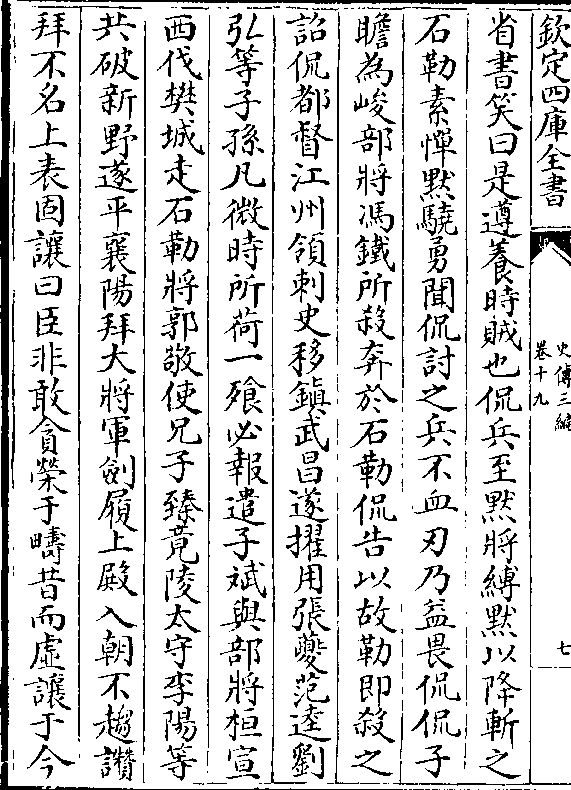 欽定四庫全書
史傳三編
卷十九
七
省書笑曰是遵養時賊也侃兵至黙將縛黙以降斬之
石勒素憚黙驍勇聞侃討之兵不血刃乃益畏侃侃子
瞻為峻部將馮鐵所殺奔於石勒侃告以故勒即殺之
詔侃都督江州領刺史移鎮武昌遂擢用張夔范逵劉
弘等子孫凡微時所荷一飱必報遣子斌與部將桓宣
西伐樊城走石勒將郭敬使兄子臻竟陵太守李陽等
共破新野遂平襄陽拜大將軍劍履上殿入朝不趨讚
拜不名上表固讓曰臣非敢貪榮于疇昔而虛讓于今